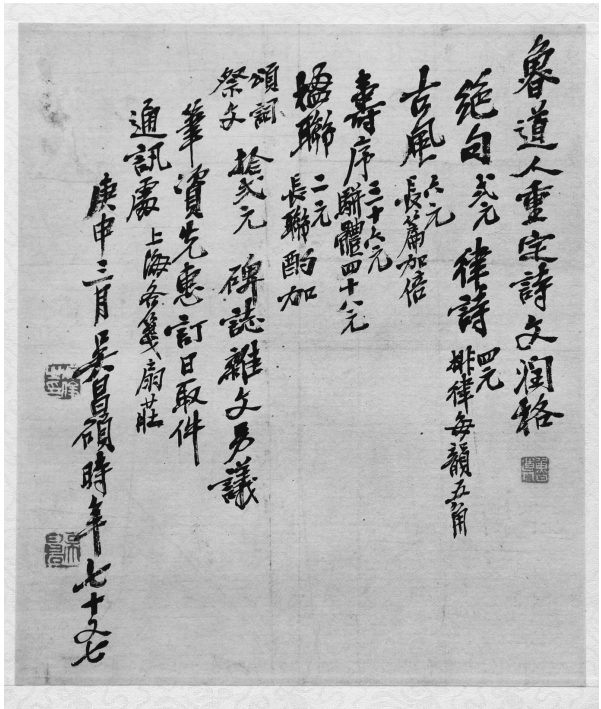 魯道人重定詩文潤格
絕句 弍元 律詩 四元 排律每韻五角
古風 六元 長篇加倍
壽序 三十六元 駢體四十八元
楹聯 二元 長聯酌加
頌詞 祭文 拾弍元 碑誌雜文另議
筆資先惠訂日取件
通訊處 上海各箋扇莊
庚申三月吳昌碩時年七十又七